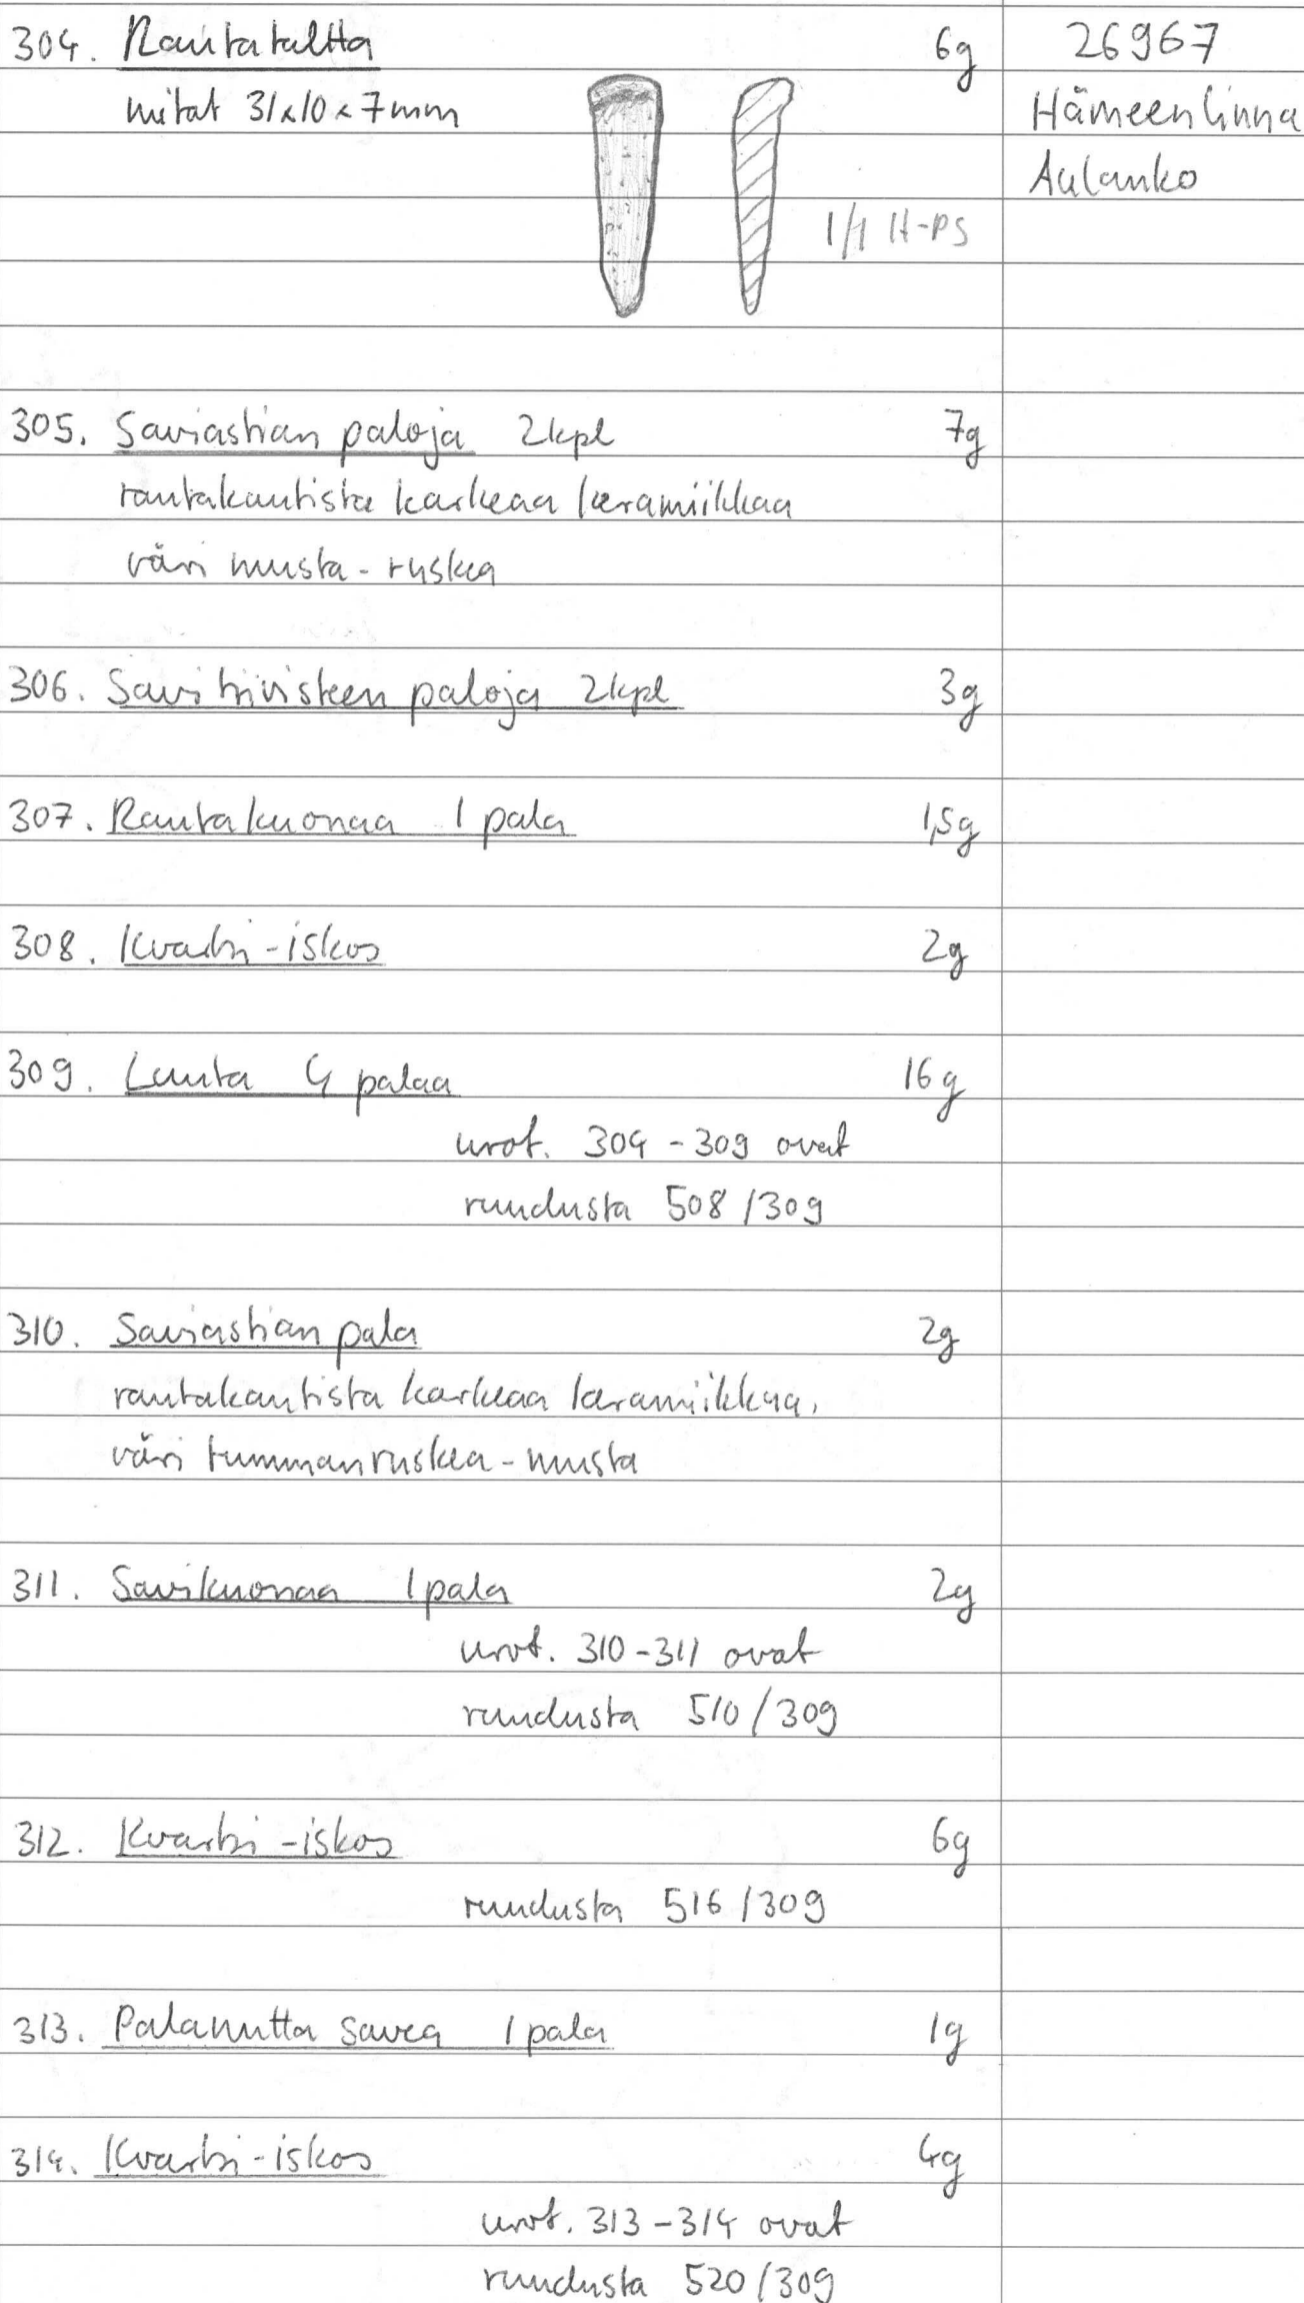 304. Rautataltta 6g 26967
mitat 31x10x7mm Hämeenlinna
Aulanko
1/1 H-PS
305. Saviastian paloja 2kpl 7g
rautakautista karkeaa keramiikkaa
väri musta-ruskea
306. Savitiivisteen paloja 2kpl 3g
307. Rautakuonaa 1 pala 1,5g
308. Kvartsi-iskos 2g
309. Luuta 4 palaa 16g
nrot. 304-309 ovat
ruudusta 508/309
310. Saviastian pala 2g
rautakautista karkeaa keramiikkaa,
väri tummanruskea-musta
311. Savikuonaa 1 pala 2g
nrot. 310-311 ovat
ruudusta 510/309
312. Kvartsi-iskos 6g
ruudusta 516/309
313. Palanutta savea 1 pala 1g
314. Kvartsi-iskos 4g
nrot. 313-314 ovat
ruudusta 520/309